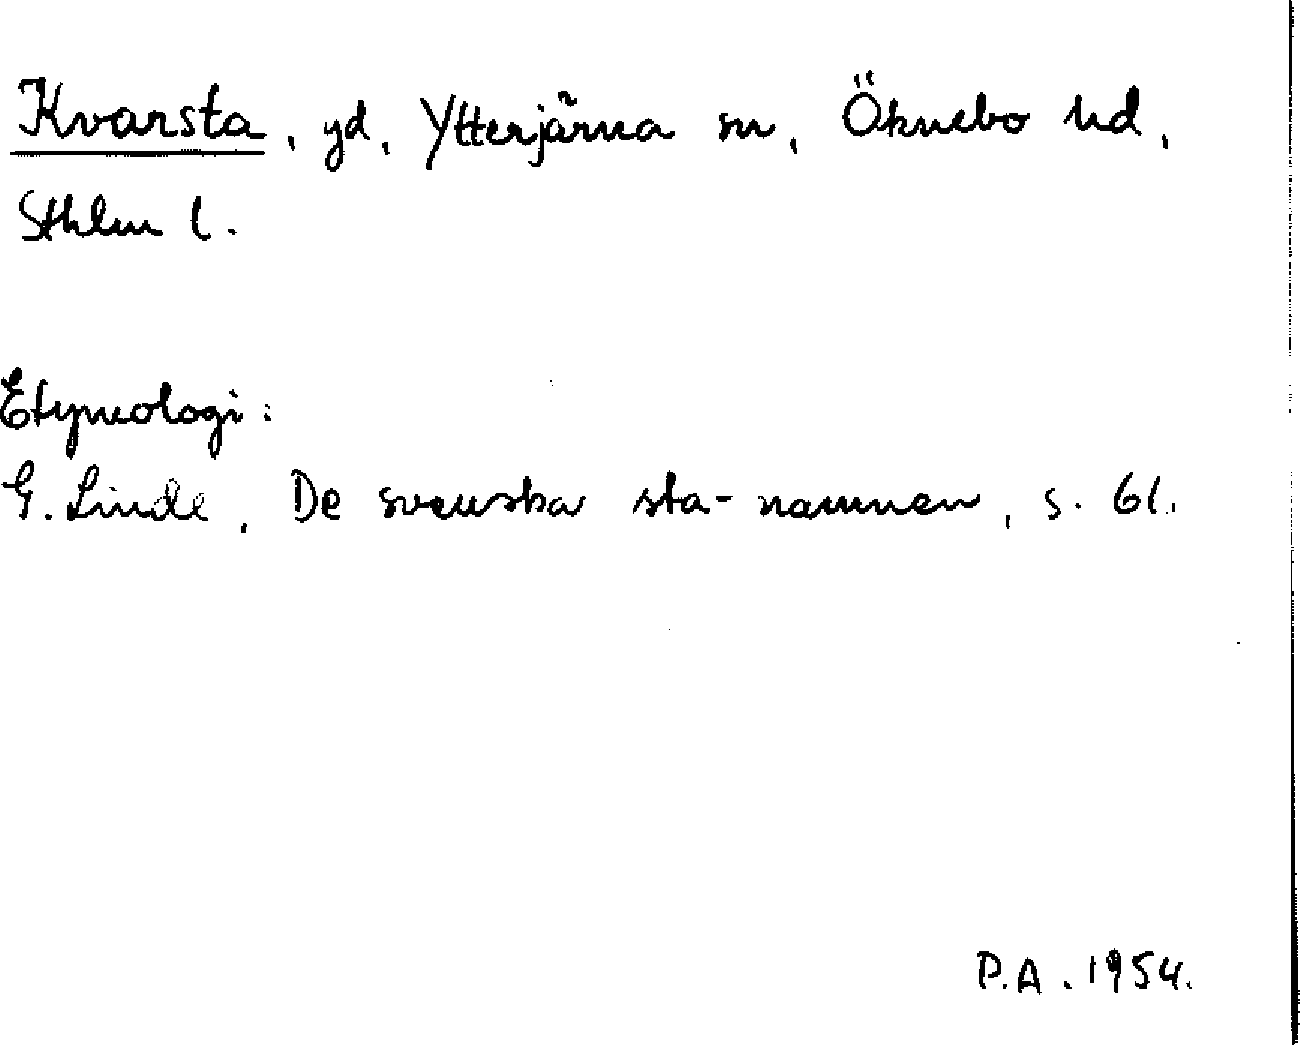 Kvarsta, gd, Ytterjärna sn, Öknebo hd,
Sthlm l.
Etymologi:
G. Linde, De svenska sta-namnen, s. 61.
P.A. 1954.